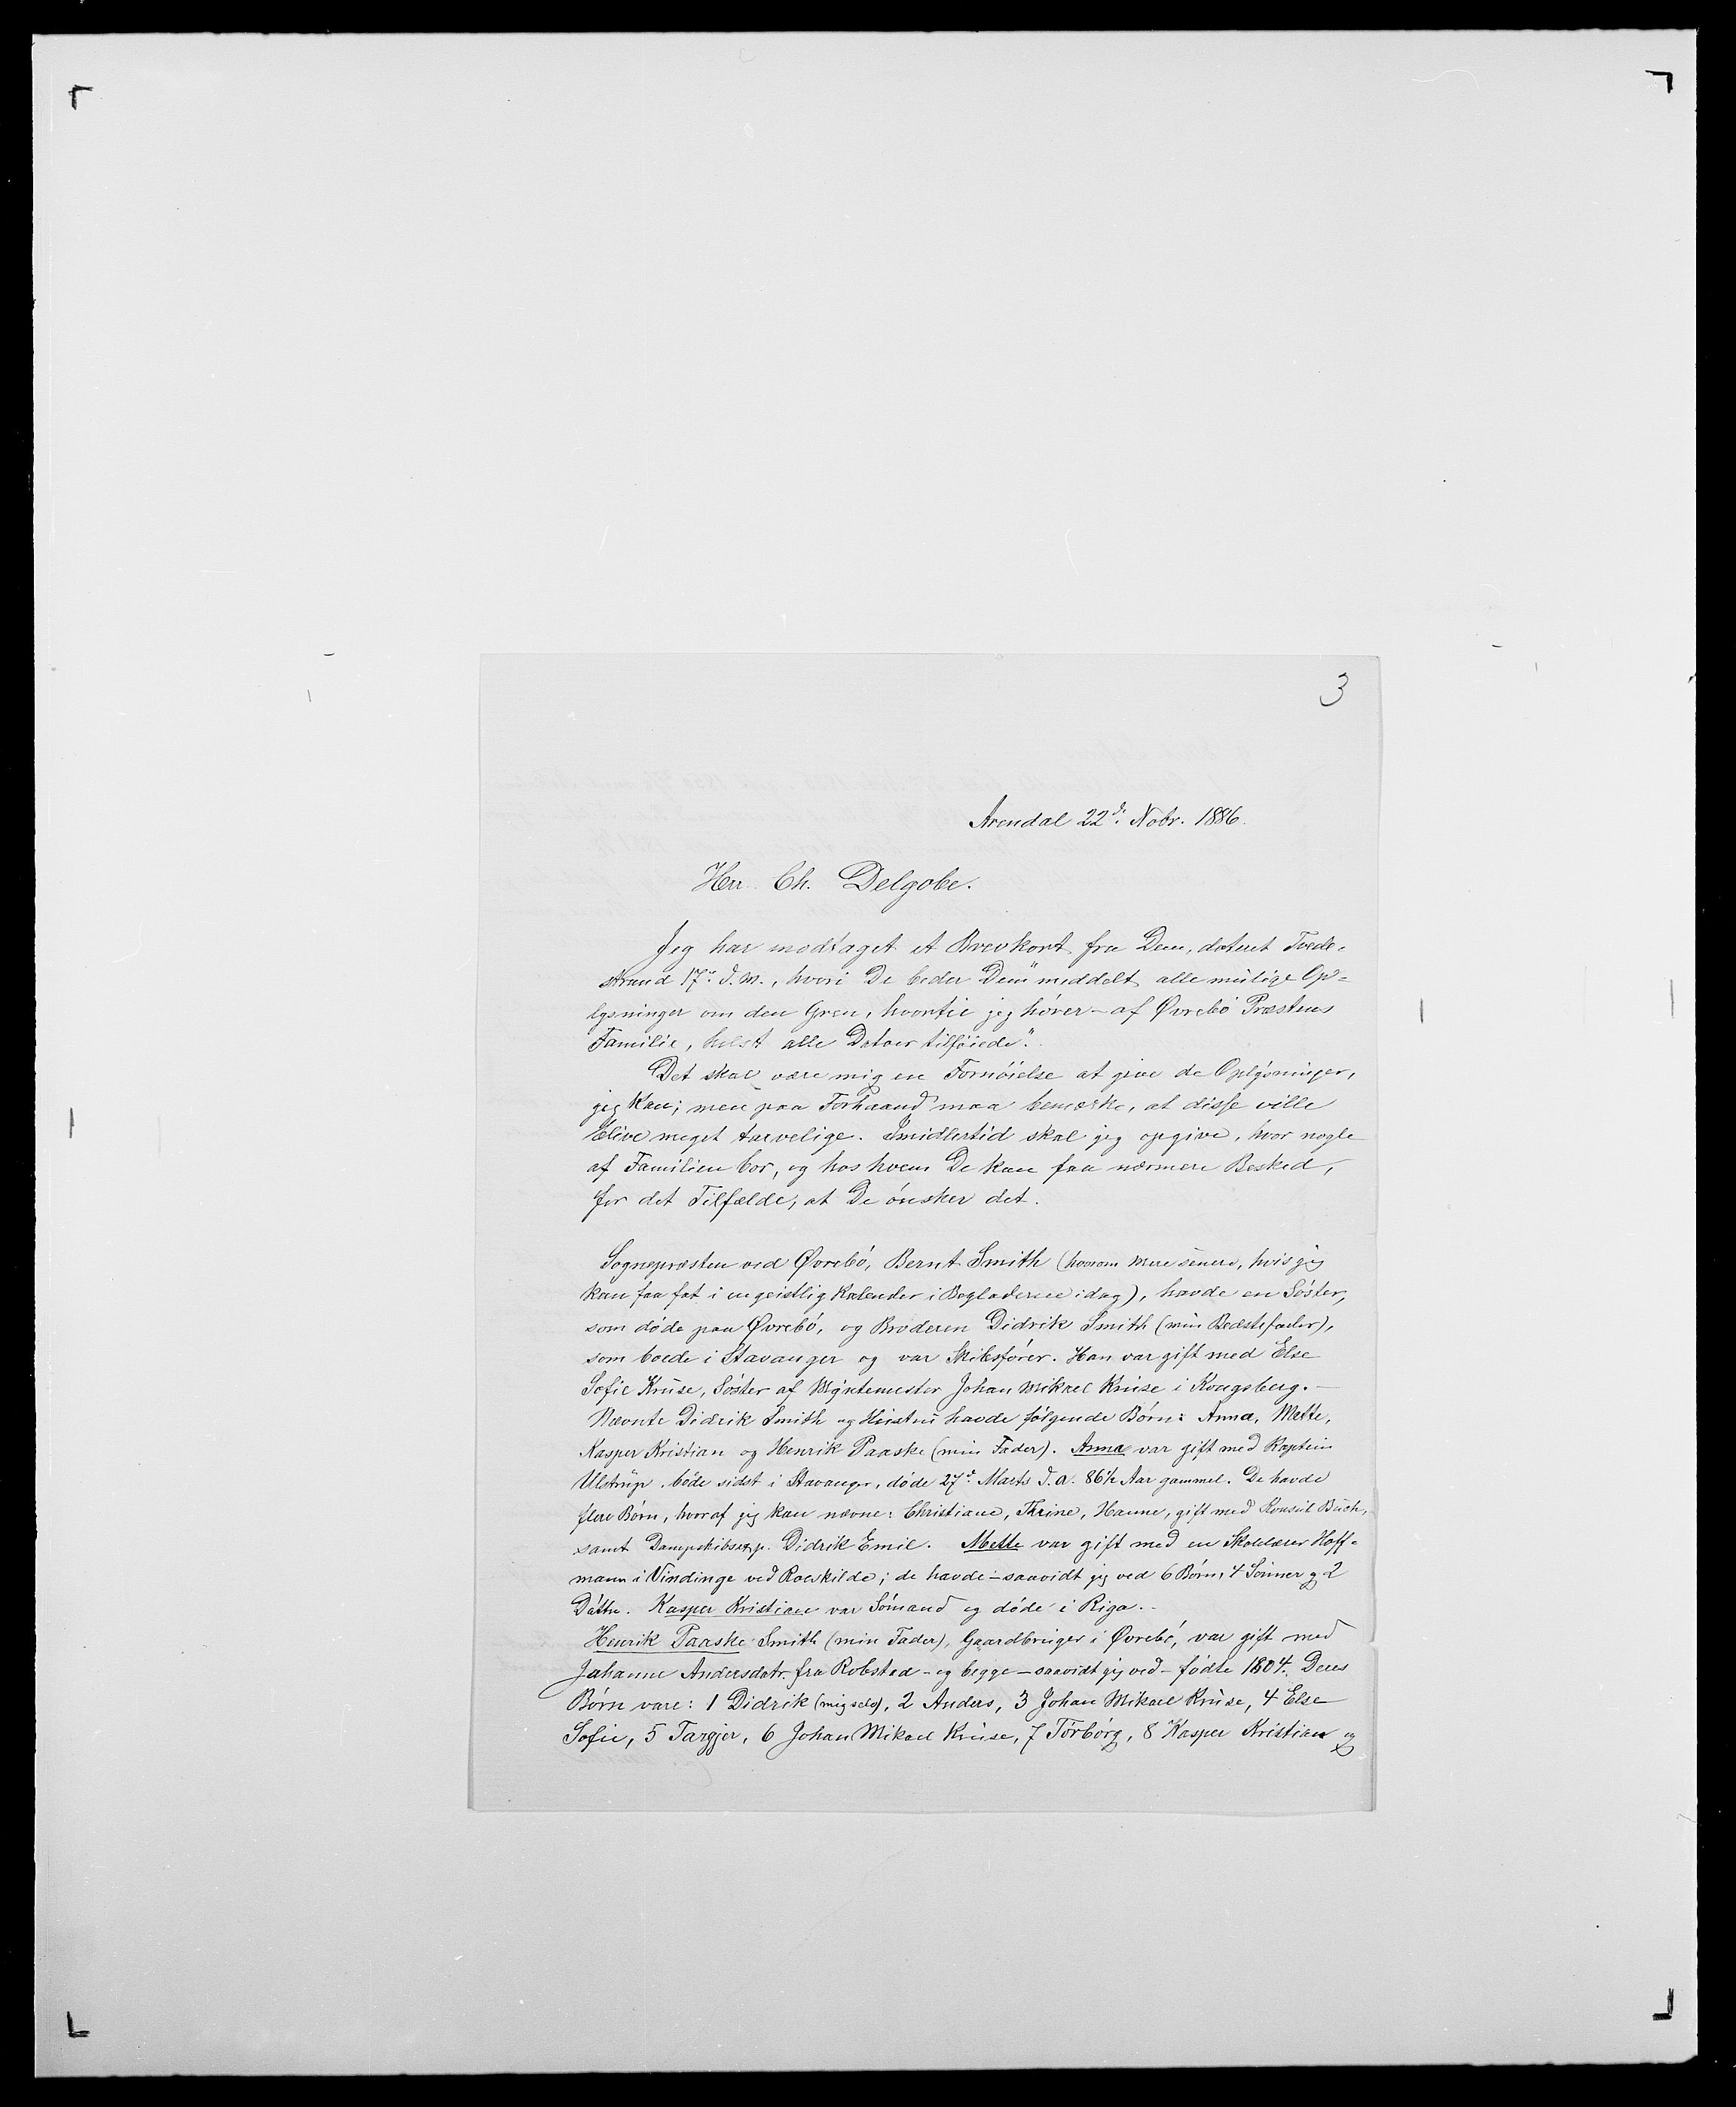 3
Arendal 22d. Nobr. 1886.
Herr Ch. Delgobe.
Jeg har modtaget et Brevkort fra Dem, dateret Tvede-
strand 17de d.M., hvori De beder Dem "meddelt alle mulige Op-
lysninger om den Gren, hvortil jeg hører - af Øvrebö Præstens
Familie, helst alle Datoer tilføiede".
Det skal være mig en Fornøielse at give de Oplysninger,
jeg kan; men paa Forhaand maa bemærke, at disse ville
blive meget tarvelige. Imidlertid skal jeg opgive, hvor nogle
af Familien bor, og hos hvem De kan faa nærmere Besked,
for det Tilfælde, at De ønsker det.
Sognepræsten ved Øvrebö, Bernt Smith (hvorom mere senere, hvis jeg
kan faa fat i en geistlig Kalender i Bogladerne idag), havde en Søster,
som døde paa Øvrebö, og Broderen Didrik Smith (min Bedstefader),
som boede i Stavanger og var Skibsfører. Han var gift med Else
Sofie Kruse, Søster af Myntemester Johan Mikael Kruse i Kongsberg. -
Nævnte Didrik Smith og Hustru havde følgende Børn: Anna, Mette,
Kasper Kristian og Henrik Paaske (min Fader). Anna var gift med Kaptein
Ulstrup, boede sidst i Stavanger, døde 27de Marts d.A. 86½ Aar gammel. De havde
flere Børn, hvoraf jeg kan nævne: Christiane, Thrine, Hanne, gift med Konsul Buch,
samt Dampskibsexp. Didrik Emil. Mette var gift med en Skolelærer Hoff-
mann i Vindinge ved Roeskilde; de havde - saavidt jeg ved 6 Børn, 4 Sønner og 2
Døttre. Kasper Kristian var Sømand og døde i Riga. -
Henrik Paaske Smith (min Fader), Gaardbruger i Øvrebö, var gift med
Johanne Andersdatr. fra Robstad - og begge - saavidt jeg ved - fødte 1804. Deres
Børn vare: 1 Didrik (mig selv), 2 Anders, 3 Johan Mikael Kruse, 4 Else
Sofie, 5 Targjer, 6 Johan Mikael Kruse, 7 Torborg, 8 Kasper Kristian og